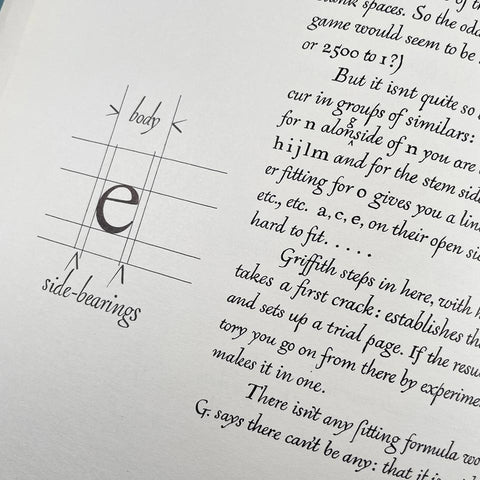 body
e
side-bearings
spaces. So the odd
game would seem to be
or 2500 to 1?)
But it isnt quite so
cur in groups of similars:
for n alonside of n you are
g
hijlm and for the stem sid
er fitting for o gives you a lin
etc., etc. a, c, e, on their open si
hard to fit. . . . .
Griffith steps in here, with h
takes a first crack: establishes th
and sets up a trial page. If the resu
tory you go on from there by experime
makes it in one.
There isn't any fitting formula wo
G. says there can't be any: that it is